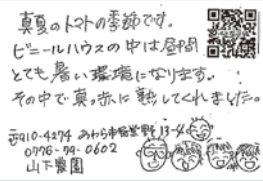 真夏のトマトの季節です。
ビニールハウスの中は昼間
とても暑い環境になります。
その中で真っ赤に熟してくれました。
〒910-4274 あわら市 13-4
0776-79-0602
山下農園